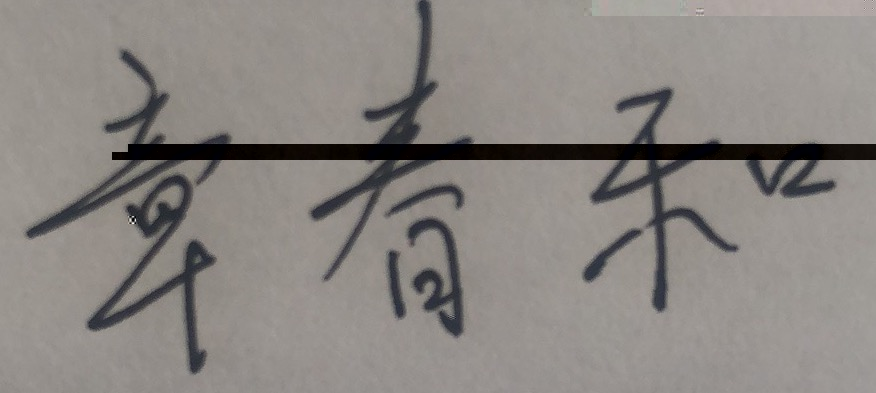 章春和